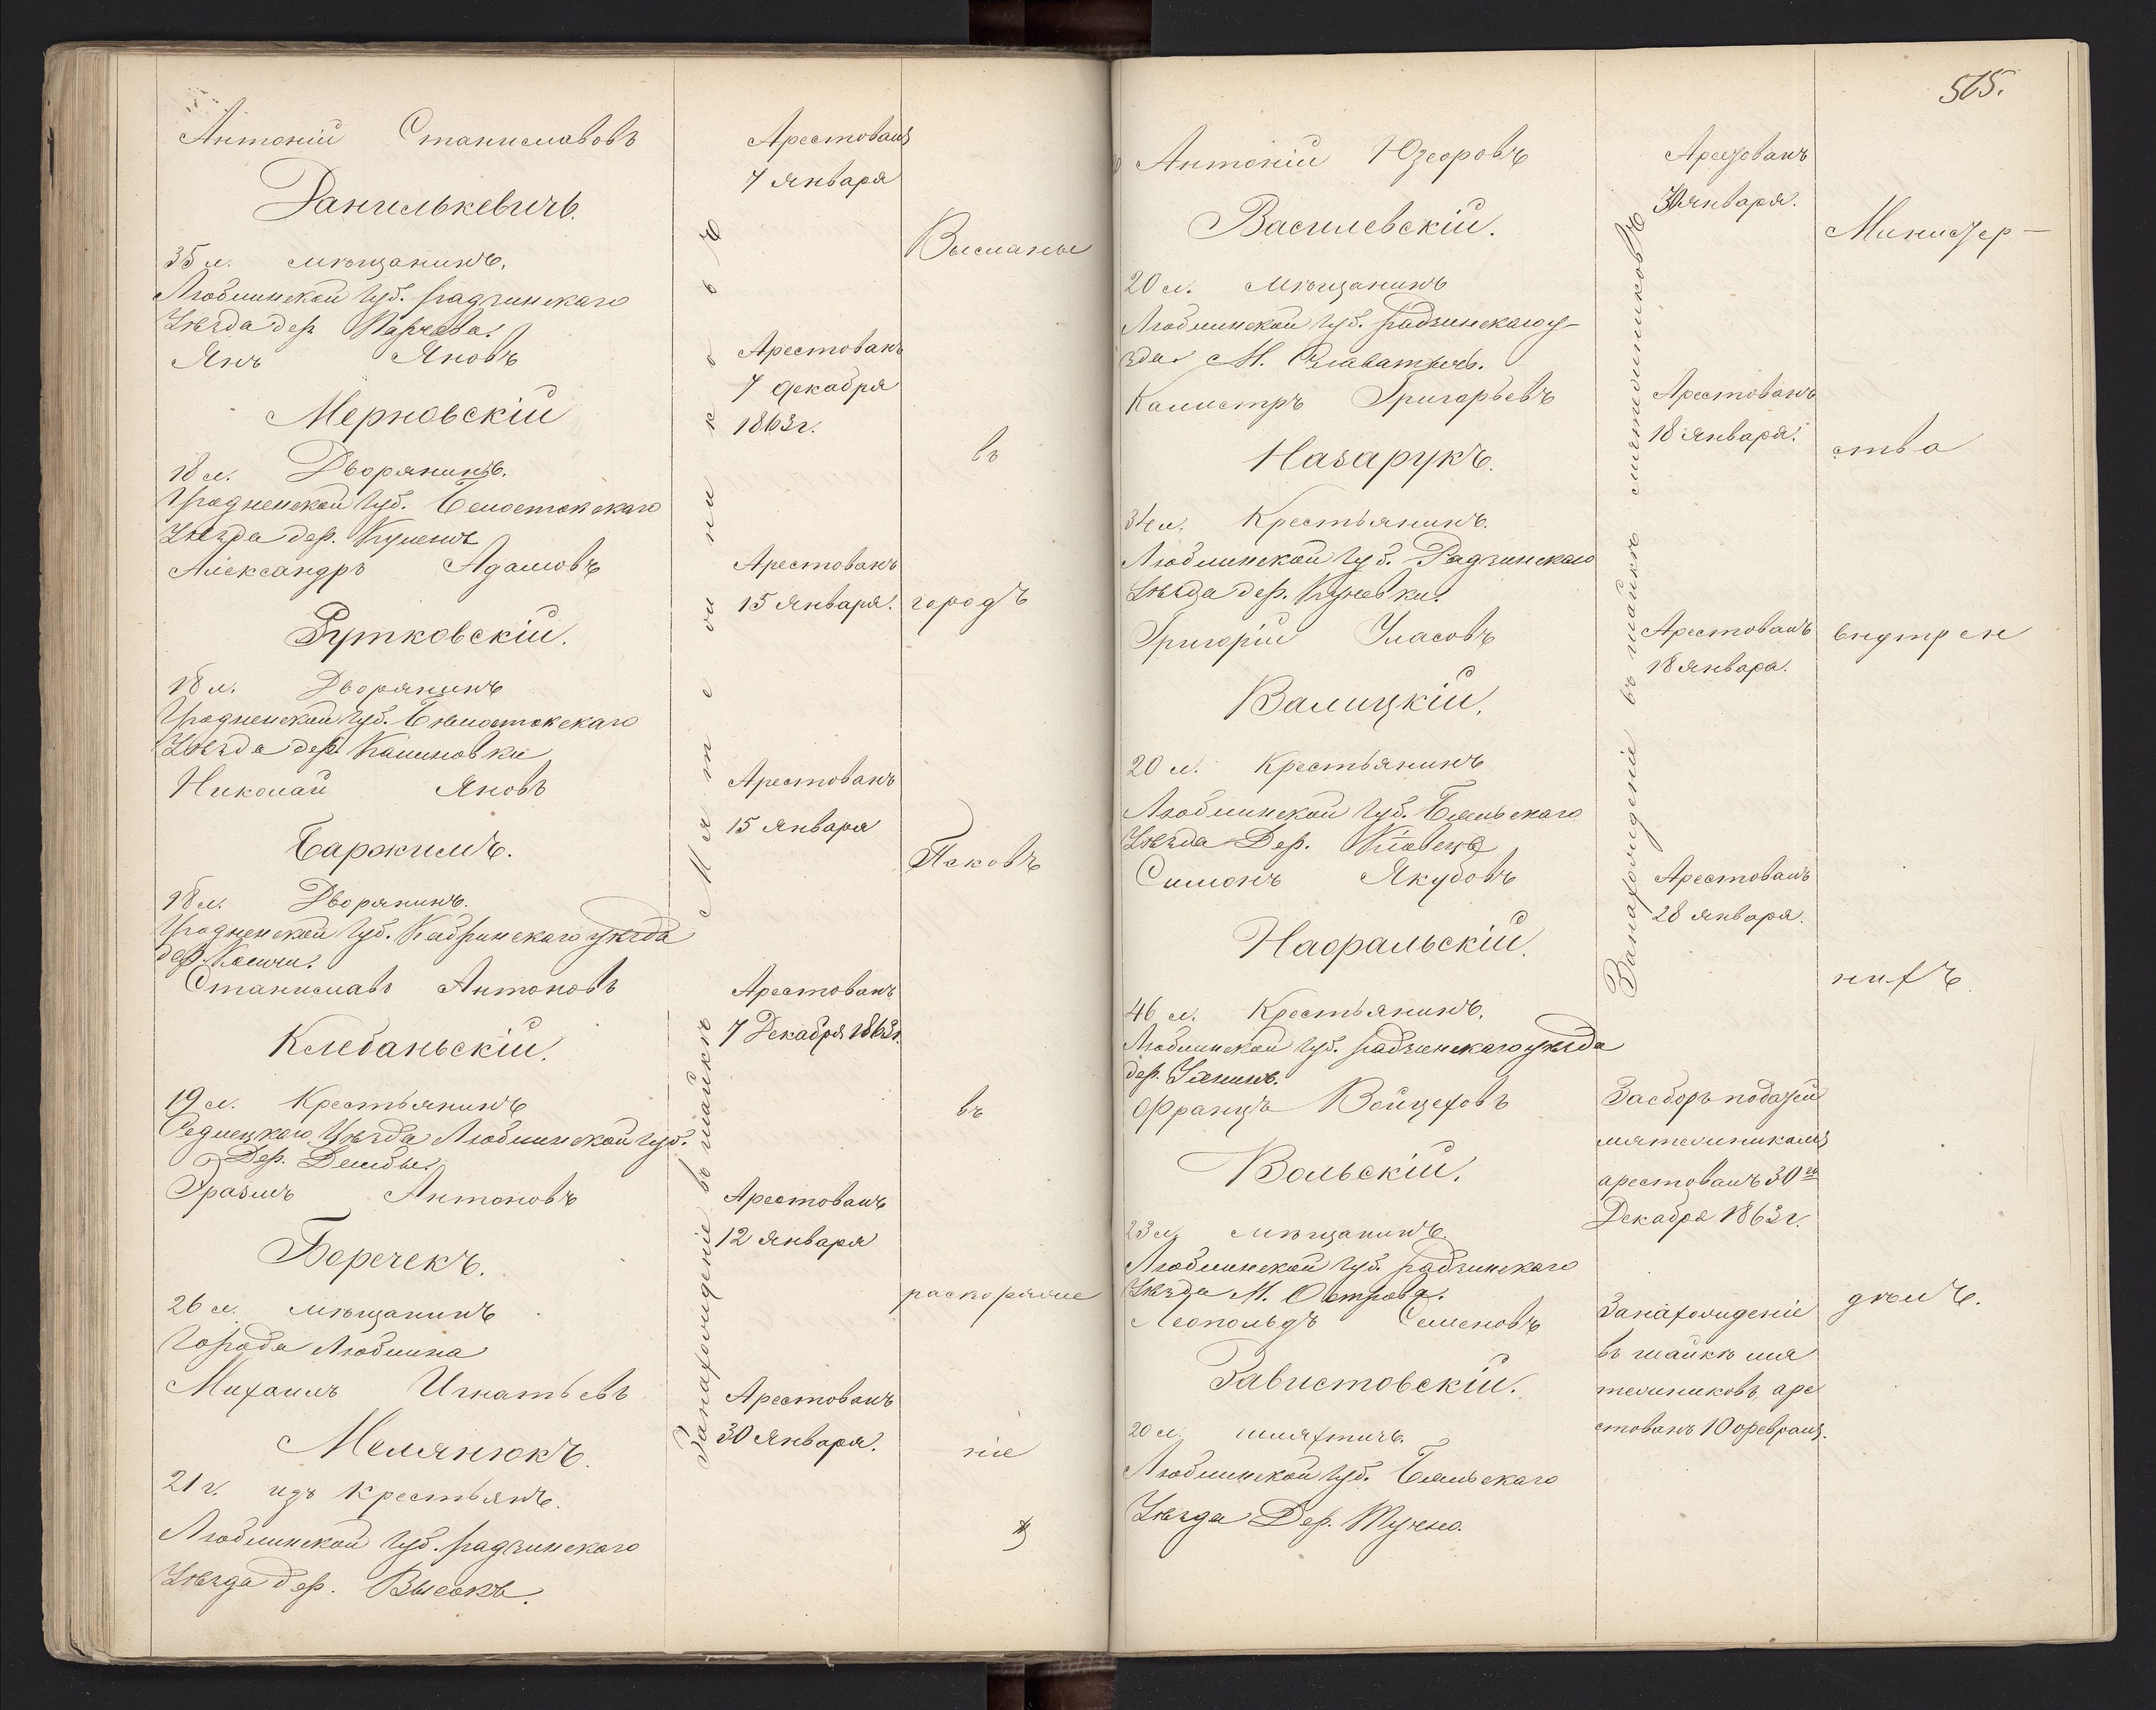 Антоній Станиславовъ
Данилькевичъ.
35 л. мѣщанинъ,
Люблинской губ. радзинскаго
Уѣзда дер. Парчева.
Янъ Яновъ
Мерновскій
18 л. Дворянинъ.
Гродненской губ. Белостокскаго
Уѣзда дер.
Александръ Адамовъ
Рутковскій.
18 л. Дворянинъ
Гродненской губ. Бѣлостокскаго
Уѣзда дер. Калиновки
Николай Яновъ
Баржимъ.
18 л. Дворянинъ.
Гродненской губ. Кобринскаго уѣзда
дер.
Станиславъ Антоновъ
Клебаньскій.
19 л. Крестьянинъ
Седлецкаго Уѣзда Люблинской губ.
Дер. Дембы.
Эразмъ Антоновъ
Боречекъ.
26 л. мѣщанинъ
Города Люблина
Михаилъ Игнатьевъ
Мелянюкъ.
21 г. изъ крестьянъ.
Люблинской губ. радзинскаго
Уѣзда дер. Высокъ.
Занахожденіе въ шайкѣ Мятежниковъ
Арестованъ
7 Января
Арестованъ
7 декабря
1863 г.
Арестованъ
15 Января.
Арестованъ
15 Января
Арестованъ
7 Декабря 1863 г.
Арестованъ
12 Января
Арестованъ
30 Января.
Высланы
въ
городъ
Псковъ
въ
распоряже
ніе
515.
Антоній Юзефовъ
Василевскій.
20 л. мѣщанинъ
Люблинской губ. радзинскаго у-
зда М. Славатычъ.
Калистръ Григорьевъ
Назарукъ.
34 л. Крестьянинъ.
Люблинской губ. Радзинскаго
Уѣзда дер.
Григорій Уласовъ
Валицкій.
20 л. Крестьянинъ
Люблинской губ. Бяльскаго
Уѣзда Дер. Кіовецъ
Симонъ Якубовъ
Нафральскій.
46 л. Крестьянинъ.
Люблинской губ. радзинскаго уѣзда
дер.
Францъ Войцеховъ
Вольскій.
23 л. мѣщанинъ.
Люблинской губ. радзинскаго
Уѣзда М. Острова.
Леопольдъ Семеновъ
Завистовскій.
20 л. шляхтичъ.
Люблинской губ. Бяльскаго
Уѣзда Дер. Тучно.
Занахожденіе въ шайкѣ мятежниковъ
Арестованъ
30 Января.
Арестованъ
18 Января.
Арестованъ
18 Января.
Арестованъ
28 Января.
За сборъ податей
мятежникамъ
арестованъ 30го
Декабря 1863 г.
Занахожденіе
въ шайкѣ мя
тежниковъ, аре
стованъ 10 февраля.
Министер-
ства
внутрен
нихъ
дѣлъ.